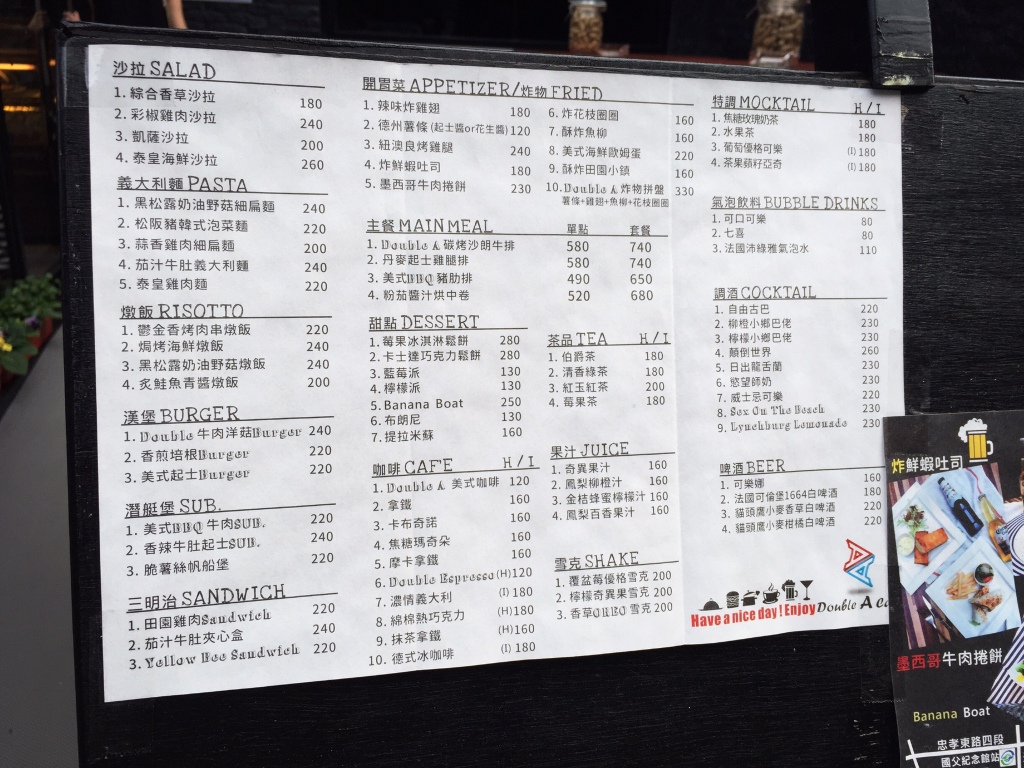 沙拉 SALAD
1. 綜合香草沙拉 180
2. 彩椒雞肉沙拉 240
3. 凱薩沙拉 200
4. 泰皇海鮮沙拉 260
義大利麵 PASTA
1. 黑松露奶油野菇細扁麵 240
2. 松阪豬韓式泡菜麵 220
3. 蒜香雞肉細扁麵 200
4. 茄汁牛肚義大利麵 240
5. 泰皇雞肉麵 220
燉飯 RISOTTO
1. 鬱金香烤肉串燉飯 220
2. 焗烤海鮮燉飯 240
3. 黑松露奶油野菇燉飯 240
4. 炙鮭魚青醬燉飯 200
漢堡 BURGER
1. Double 牛肉洋菇Burger 240
2. 香煎培根Burger 220
3. 美式起士Burger 220
潛艇堡 SUB.
1. 美式BBQ 牛肉SUB. 220
2. 香辣牛肚起士SUB. 240
3. 脆薯絲帆船堡 220
三明治 SANDWICH
1. 田園雞肉Sandwich 220
2. 茄汁牛肚夾心盒 240
3. Yellow Bee Sandwich 220
開胃菜 APPETIZER/炸物 FRIED
1. 辣味炸雞翅 180
2. 德州薯條 (起士醬or花生醬) 120
3. 紐澳良烤雞腿 240
4. 炸鮮蝦吐司 180
5. 墨西哥牛肉捲餅 230
6. 炸花枝圈圈 160
7. 酥炸魚柳 160
8. 美式海鮮歐姆蛋 220
9. 酥炸田園小鎮 160
10. Double A 炸物拼盤 330
薯條+雞翅+魚柳+花枝圈圈
主餐 MAIN MEAL 單點 套餐
1. Double A 碳烤沙朗牛排 580 740
2. 丹麥起士雞腿排 580 740
3. 美式BBQ 豬肋排 490 650
4. 粉茄醬汁烘中卷 520 680
甜點 DESSERT
1. 莓果冰淇淋鬆餅 280
2. 卡士達巧克力鬆餅 280
3. 藍莓派 130
4. 檸檬派 130
5. Banana Boat 250
6. 布朗尼 130
7. 提拉米蘇 160
咖啡 CAF'E H / I
1. Double A 美式咖啡 120
2. 拿鐵 160
3. 卡布奇諾 160
4. 焦糖瑪奇朵 160
5. 摩卡拿鐵 160
6. Double Espresso (H) 120
7. 濃情義大利 (I) 180
8. 綿棉熱巧克力 (H) 180
9. 抹茶拿鐵 (H) 160
10. 德式冰咖啡 (I) 180
茶品 TEA H / I
1. 伯爵茶 180
2. 清香綠茶 180
3. 紅玉紅茶 200
4. 莓果茶 180
果汁 JUICE
1. 奇異果汁 160
2. 鳳梨柳橙汁 160
3. 金桔蜂蜜檸檬汁 160
4. 鳳梨百香果汁 160
雪克 SHAKE
1. 覆盆莓優格雪克 200
2. 檸檬奇異果雪克 200
3. 香草OREO 雪克 200
特調 MOCKTAIL H / I
1. 焦糖玫瑰奶茶 180
2. 水果茶 180
3. 葡萄優格可樂 (I) 180
4. 茶果蘋籽亞奇 (I) 180
氣泡飲料 BUBBLE DRINKS
1. 可口可樂 80
2. 七喜 80
3. 法國沛綠雅氣泡水 110
調酒 COCKTAIL
1. 自由古巴 220
2. 柳橙小鄉巴佬 230
3. 檸檬小鄉巴佬 230
4. 顛倒世界 260
5. 日出龍舌蘭 230
6. 慾望師奶 230
7. 威士忌可樂 220
8. Sex On The Beach 230
9. Lynchburg Lemonade 230
啤酒 BEER
1. 可樂娜 160
2. 法國可倫堡1664白啤酒 180
3. 貓頭鷹小麥香草白啤酒 220
4. 貓頭鷹小麥柑橘白啤酒 220
Have a nice day ! Enjoy Double A
炸鮮蝦吐司
墨西哥牛肉捲餅
Banana Boat
忠孝東路四段
國父紀念館站